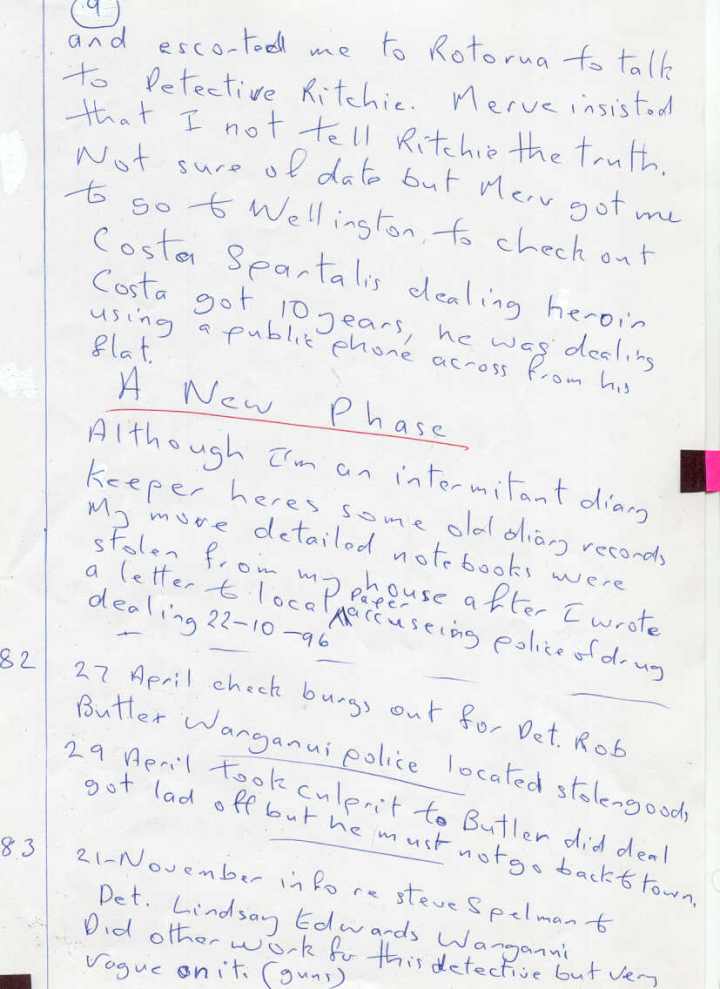 9
and escorted me to Rotorua to talk
to Detective Ritchie. Merve insisted
that I not tell Ritchie the truth.
Not sure of date but Merv got me
to go to Wellington, to check out
Costa Spartalis dealing heroin
Costa got 10 years, he was dealing
using a public phone across from his
flat.
A New Phase
Although I'm an intermitant diary
keeper heres some old diary records
My more detailed notebooks were
stolen from my house after I wrote
a letter to local paper accuseing police of drug
dealing 22-10-96
82 27 April check burgs out for Det. Rob
Butler Wanganui police located stolen goods
29 April took culprit to Butler did deal
got lad off but he must not go back to town.
83 21-November info re steve Spelman to
Det. Lindsay Edwards Wanganui
Did other work for this detective but very
vague on it. (guns)